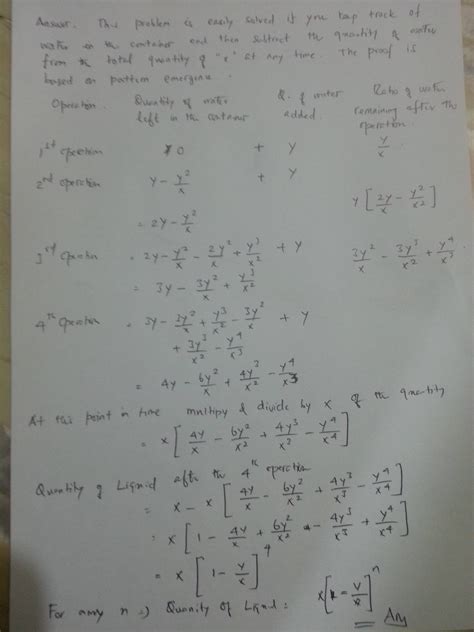 Answer. This problem is easily solved if you keep track of
water in the container and then subtract the quantity of water
from the total quantity of "x" at any time. The proof is
based on pattern emergence.
Operation Quantity of water left in the container Q. of water added. Ratio of water remaining after the operation.
1st operation 0 + y y/x
2nd operation y - y²/x + y
= 2y - y²/x y[2y/x - y²/x²]
3rd operation = 2y - y²/x - 2y²/x + y³/x² + y 3y²/x - 3y³/x² + y⁴/x³
= 3y - 3y²/x + y³/x²
4th operation = 3y - 3y²/x + y³/x² - 3y²/x + y
+ 3y³/x² - y⁴/x³
= 4y - 6y²/x + 4y³/x² - y⁴/x³
At this point in time multipy & divide by x of the quantity
= x[4y/x - 6y²/x² + 4y³/x³ - y⁴/x⁴]
Quantity of Liquid after the 4th operation
= x - x[4y/x - 6y²/x² + 4y³/x³ - y⁴/x⁴]
= x[1 - 4y/x + 6y²/x² - 4y³/x³ + y⁴/x⁴]
= x[1 - y/x]⁴
For any n => Quantity of Liquid: x[1 - y/x]ⁿ Ans